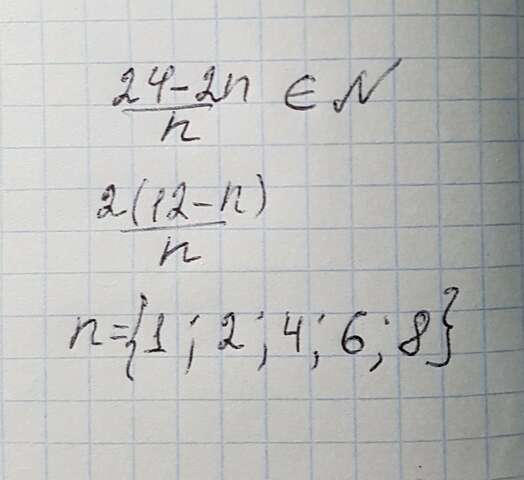 24-2n / n ∈ N
2(12-n) / n
n={1; 2; 4; 6; 8}